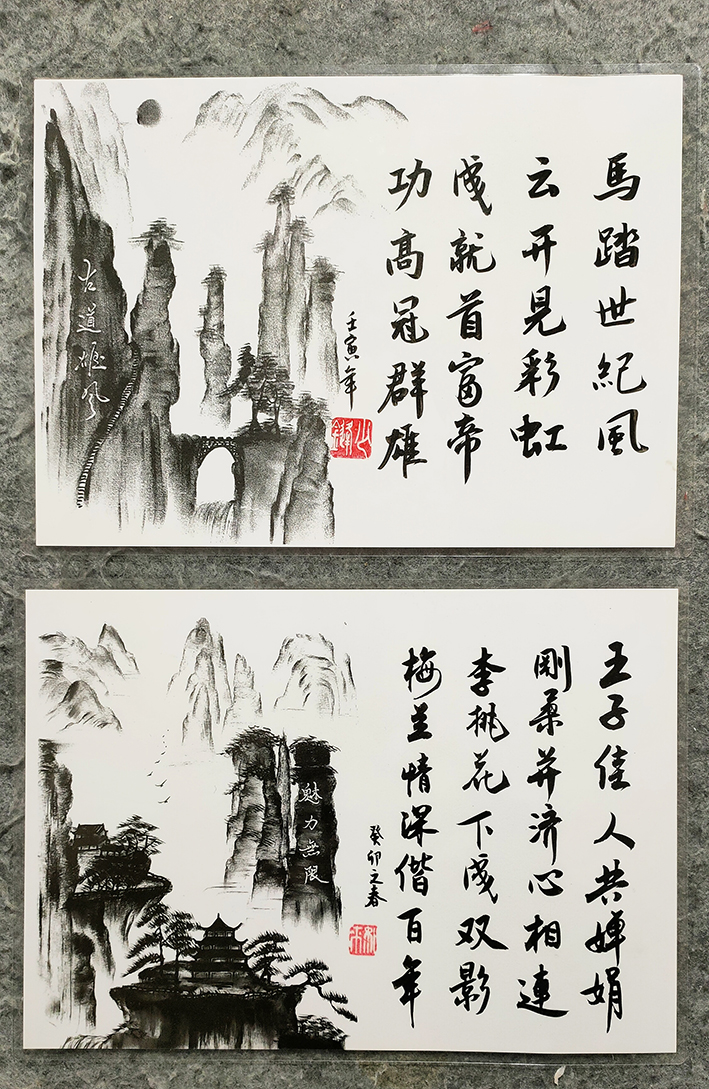 馬踏世紀風
云开見彩虹
成就首富帝
功高冠群雄
壬寅年
古道雄风
王子佳人共婵娟
剛柔并济心相連
李桃花下成双影
梅兰情深偕百年
癸卯之春
魅力無限